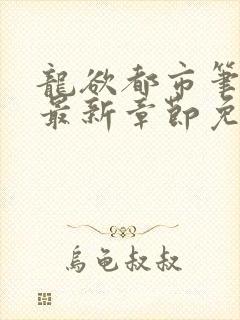 龍欲都市筆
最新章節免
烏龟叔叔